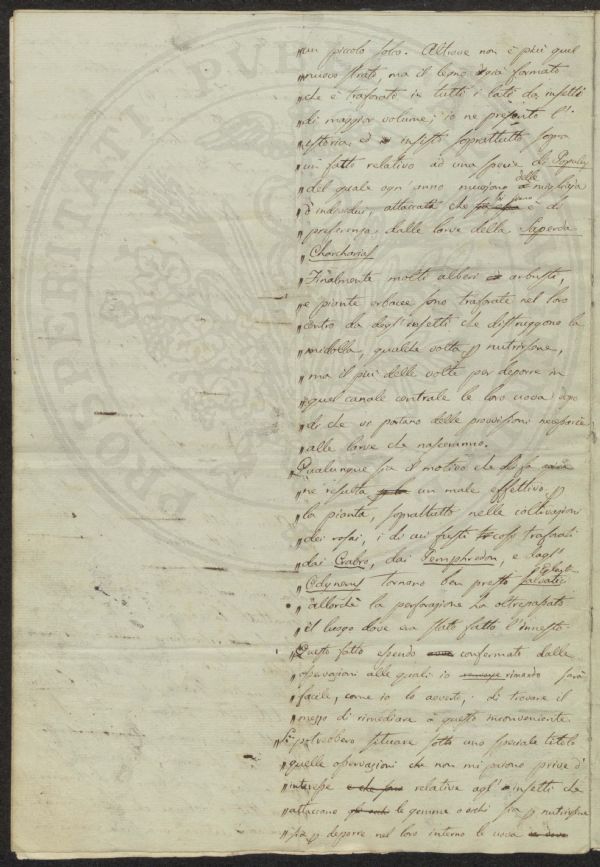 „un piccolo foro. Altrove non è più quel
„nuovo strato, ma il legno già formato
„che è traforato in tutti i lati da insetti
„di maggior volume; io ne presento l'
„istoria, ed insisto soprattutto sopra
„un fatto relativo ad una specie di
„del quale ogni anno muojono delle migliaja
„d'individui, è di
„preferenza dalle larve della Saperda
„Charcharias
„Finalmente molti alberi arbusti,
„e piante erbacee sono traforate nel loro
„centro da degl'insetti che distruggono la
„midolla, qualche volta p nutrirsene,
„ma il più delle volte per deporre in
„quel canale centrale le loro uova
„di che vi portano delle provvisioni necessarie
„alle larve che nasceranno.
„Qualunque sia il motivo che
„ne risulta un male effettivo p
„la pianta, soprattutto nelle coltivazioni
„dei rosai, i di cui fusti così traforati
„dai Crabro, dai Pemphredon, e dagl'
„Odyneres tornano ben presto salvatici
„allorchè la perforazione ha oltrepassato
„il luogo dove era stato fatto l'innesto.
„Questo fatto essendo confermato dalle
„osservazioni alle quali io rimando sarà
„facile, come io lo avverto, di trovare il
„mezzo di rimediare a questo inconveniente.
„Si potrebbero situare sotto uno speciale titolo
„quelle osservazioni che non mi pajono prive d'
„interesse relative agl'insetti che
„attaccano le gemme o occhi sia p nutrirsene
„sia p deporre nel loro interno le uova
PROSPERITATI PVBLI